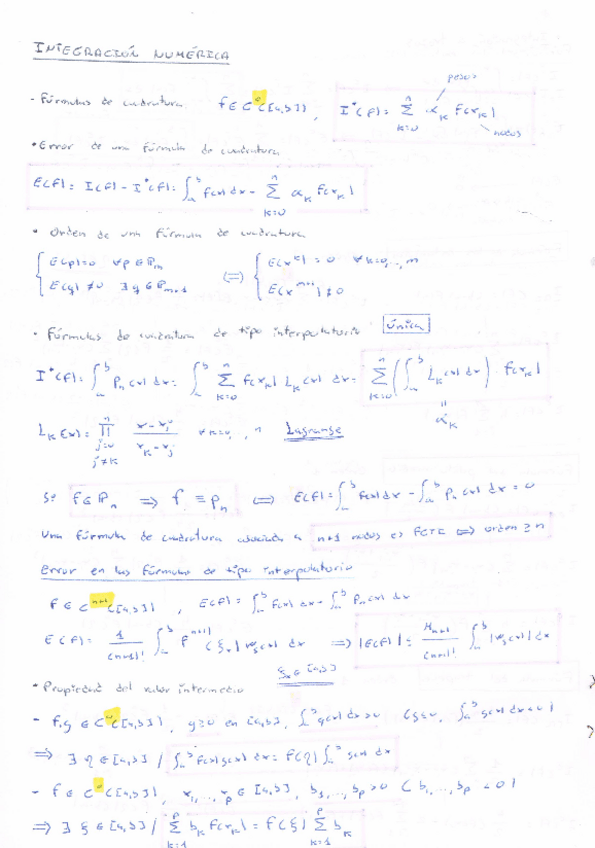 INTEGRACIÓN NUMÉRICA
pesos
- Fórmulas de cuadratura f ∈ C⁰([a,b]), I*(f) = ∑_{k=0}^{n} α_k f(x_k)
nodos
• Error de una fórmula de cuadratura
E(f) = I(f) - I*(f) = ∫_a^b f(x) dx - ∑_{k=0}^{n} α_k f(x_k)
• Orden de una fórmula de cuadratura
{ E(p)=0 ∀p ∈ ℙ_m (⇔) { E(x^k) = 0 ∀k=0,..,m
E(q) ≠ 0 ∃ q ∈ ℙ_{m+1} E(x^{m+1}) ≠ 0
• Fórmulas de cuadratura de tipo interpolatorio única
I*(f) = ∫_a^b p_n(x) dx = ∫_a^b ∑_{k=0}^{n} f(x_k) L_k(x) dx = ∑_{k=0}^{n} (∫_a^b L_k(x) dx) · f(x_k)
|| α_k
L_k(x) = ∏_{j=0, j≠k}^{n} (x - x_j)/(x_k - x_j) ∀k=0,..,n Lagrange
Si f ∈ ℙ_n ⇒ f ≡ p_n ⇔ E(f) = ∫_a^b f(x) dx - ∫_a^b p_n(x) dx = 0
Una fórmula de cuadratura asociada a n+1 nodos es FCTI ⇔ orden ≥ n
Error en las fórmulas de tipo interpolatorio
f ∈ C^{n+1}([a,b]), E(f) = ∫_a^b f(x) dx - ∫_a^b p_n(x) dx
E(f) = 1/(n+1)! ∫_a^b f^{n+1)}(ξ_x) w_s(x) dx ⇒ |E(f)| ≤ M_{n+1}/(n+1)! ∫_a^b |w_s(x)| dx
ξ_x ∈ [a,b]
• Propiedad del valor intermedio
- f,g ∈ C⁰([a,b]), g≥0 en [a,b], ∫_a^b g(x) dx > 0 (g≤0, ∫_a^b g(x) dx < 0)
⇒ ∃ η ∈ [a,b] / ∫_a^b f(x) g(x) dx = f(η) ∫_a^b g(x) dx
- f ∈ C⁰([a,b]), x_1,..,x_p ∈ [a,b], b_1,..,b_p > 0 (b_1,..,b_p < 0)
⇒ ∃ ξ ∈ [a,b] / ∑_{k=1}^{p} b_k f(x_k) = f(ξ) ∑_{k=1}^{p} b_k